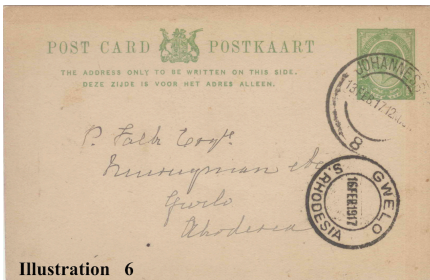 POST CARD POSTKAART
THE ADDRESS ONLY TO BE WRITTEN ON THIS SIDE.
DEZE ZIJDE IS VOOR HET ADRES ALLEEN.
JOHANNESB
13 FEB 17 12
8
P. Falk Esqr.
Gwelo
Rhodesia
GWELO
16 FEB 1917
S. RHODESIA
Illustration 6